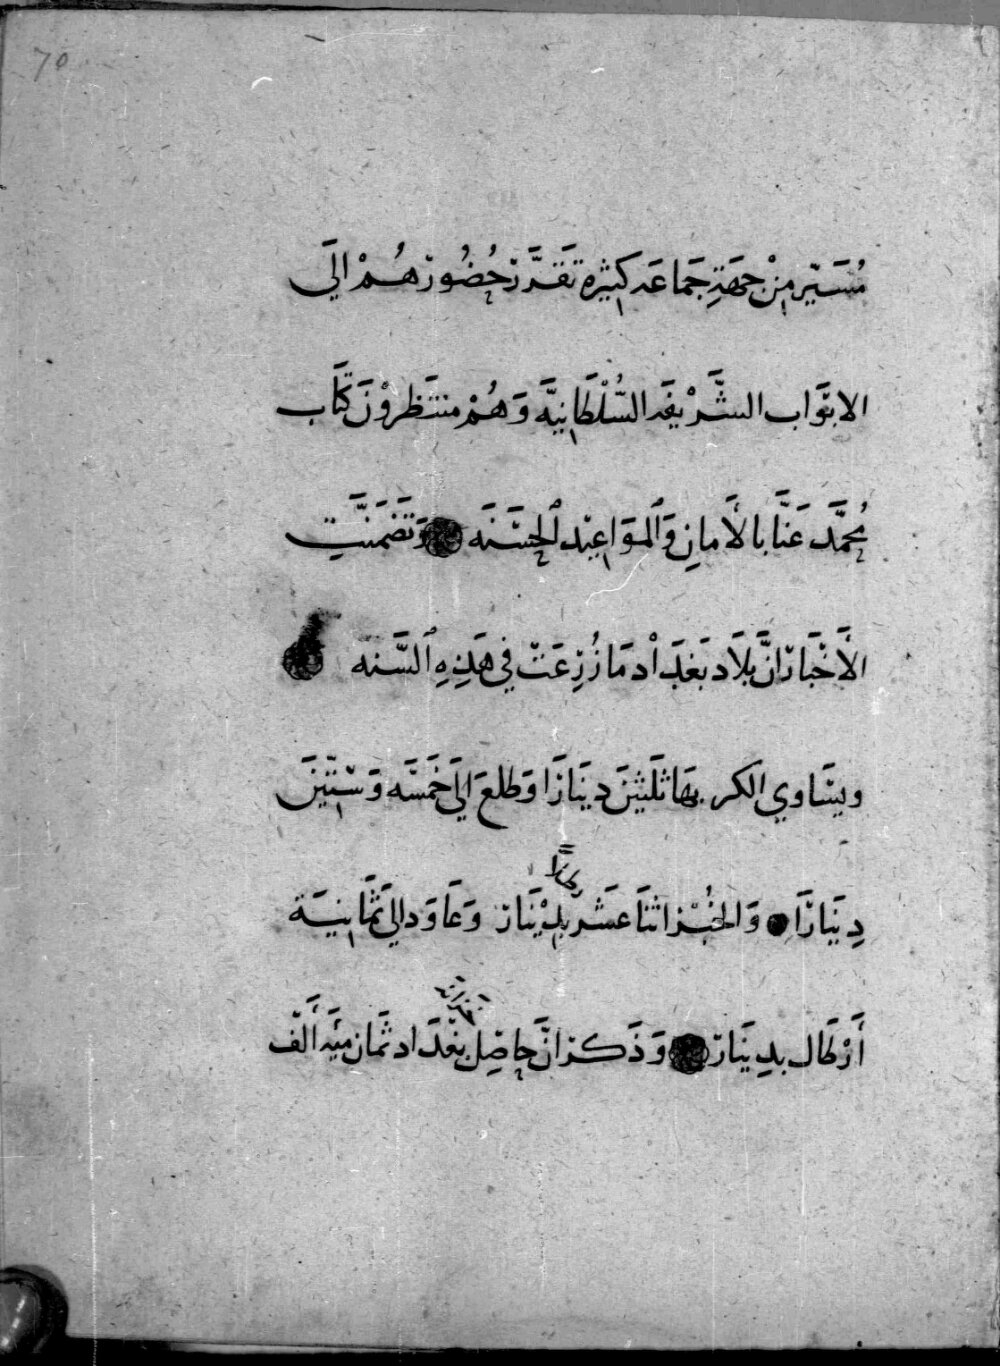 70
مُسَيّر مِنْ جِهَةِ جَمَاعَه كَثِيْره تَقَرَّرَ حُضُورُهُمْ الَي
الابوَاب الشَّرْيفَه السُّلْطَانيَّه وَهُمْ منتَظرُوْنَ كتَاب
مُحمَّد عَنَّا بالأَمانِ وَٱلموَاعِيْد ٱلحسَنَه وَتَضَمَنَّتِ
الأَخْبَار انَّ بلَاد بَغدَاْد مَا زُرِعَتْ في هَذِهِ ٱلسَّنه
ويسَاوي الكر بهَا ثلَثينَ دينَارًا وَطلعَ الَي خَمسَه وَستّينَ
دِينَارًا وَالخُبْز اثنَا عشَر رطلًا بدِيْنَار وَعَاوَد الي ثَمَانيَة
أَرْطَال بدِينَار وَذَكر انَّ حَاصِل خزانه بغْدَاد ثمَان ميَه أَلف